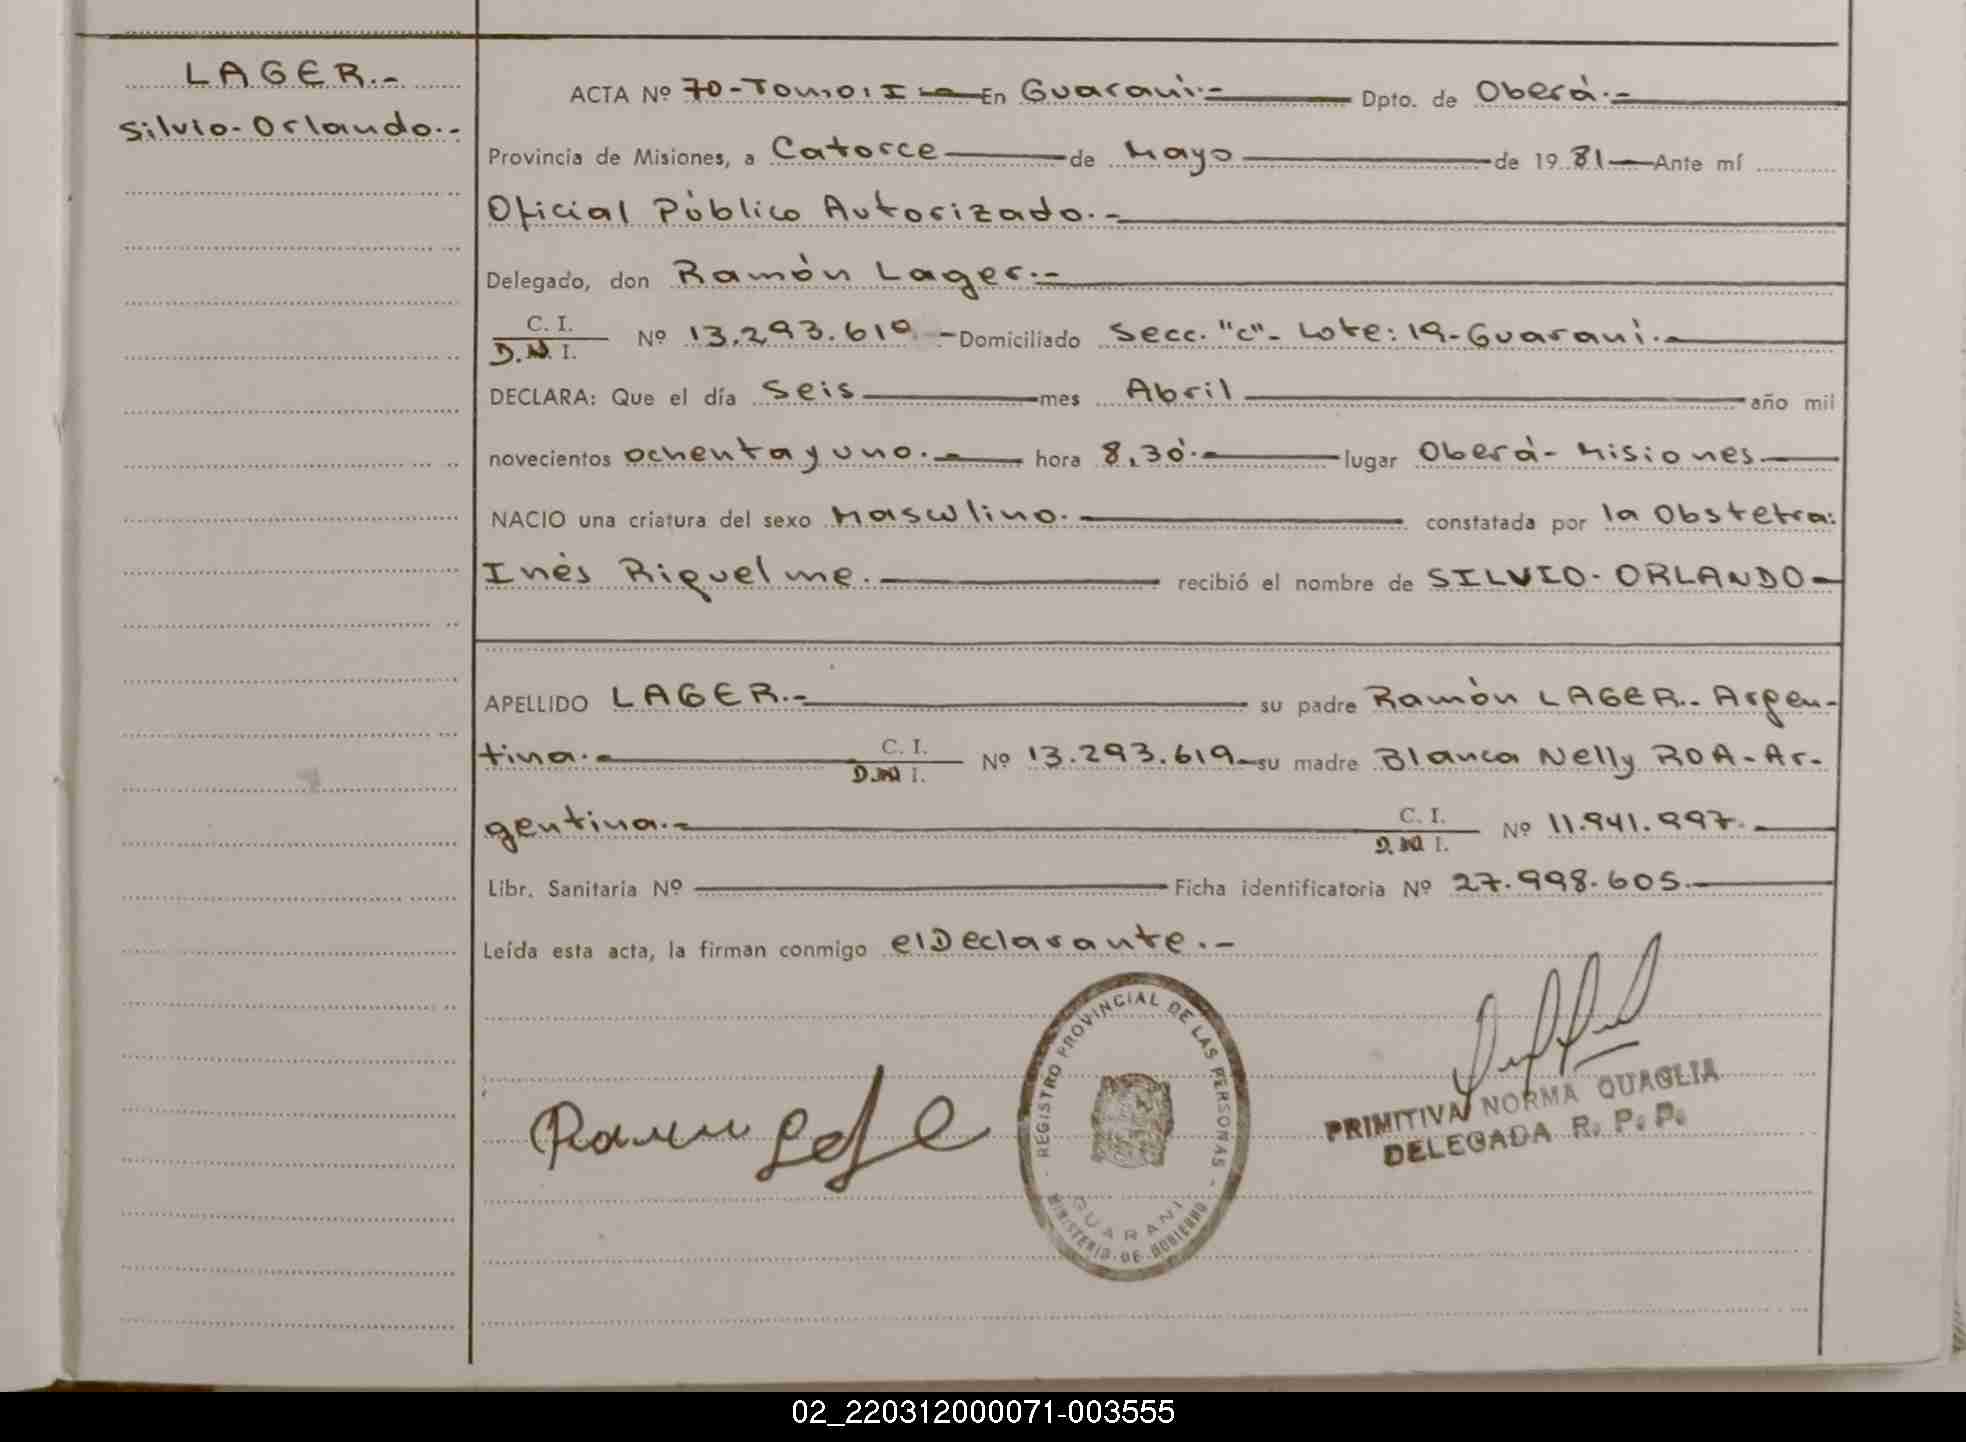 LAGER.-
Silvio-Orlando.-
ACTA Nº 70-Tomo: I En Guaraní.- Dpto. de Oberá.-
Provincia de Misiones, a Catorce de Mayo de 19 81 Ante mí
Oficial Público Autorizado.-
Delegado, don Ramón Lager.-
C. I.
D.N. I. Nº 13.293.619 - Domiciliado Secc. "C"- Lote: 19-Guaraní.-
DECLARA: Que el día Seis mes Abril año mil
novecientos ochenta y uno.- hora 8,30.- lugar Oberá-Misiones
NACIO una criatura del sexo Masculino. constatada por la Obstetra:
Inés Riquelme. recibió el nombre de SILVIO-ORLANDO-
APELLIDO LAGER.- su padre Ramón LAGER.- Argen-
tina.- C. I.
D.N. I. Nº 13.293.619- su madre Blanca Nelly ROA-Ar-
gentina.- C. I.
D.N. I. Nº 11.941.997.-
Libr. Sanitaria Nº Ficha identificatoria Nº 27.998.605.
Leída esta acta, la firman conmigo el Declarante.-
- REGISTRO PROVINCIAL DE LAS PERSONAS -
GUARANI
MINISTERIO DE GOBIERNO
PRIMITIVA NORMA QUAGLIA
DELEGADA R. P. P.
02_220312000071-003555